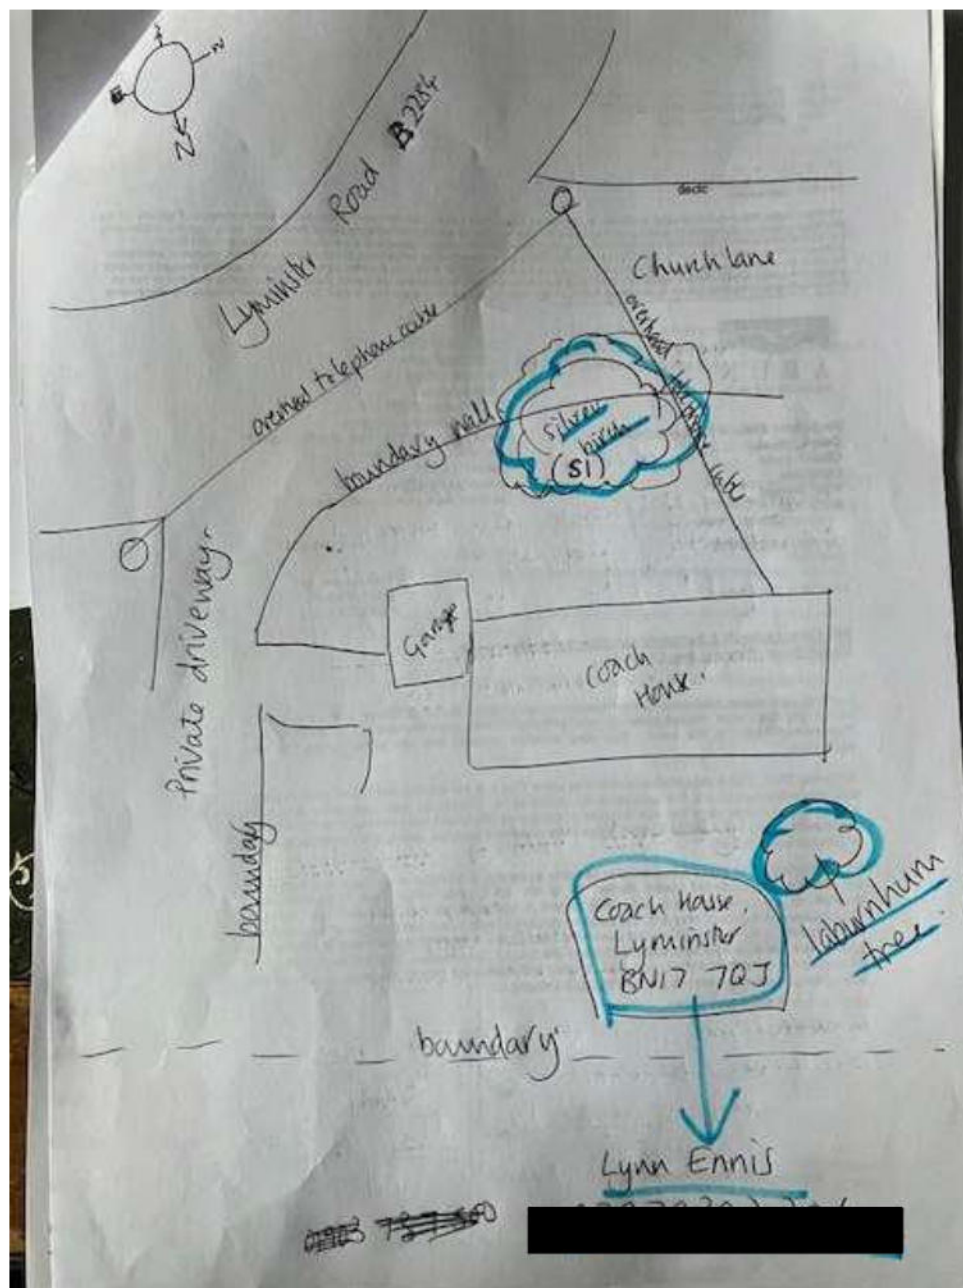 N
Lyminster Road B2284
Church lane
overhead telephone cable
overhead telephone cable
boundary wall
silver
birch
(S1)
Private driveway.
Garage
Coach
House.
boundary
Coach House,
Lyminster
BN17 7QJ
laburnhum
tree
boundary
Lynn Ennis